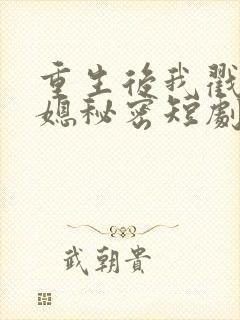 重生後我戳
媳秘密短劇
武朝貴